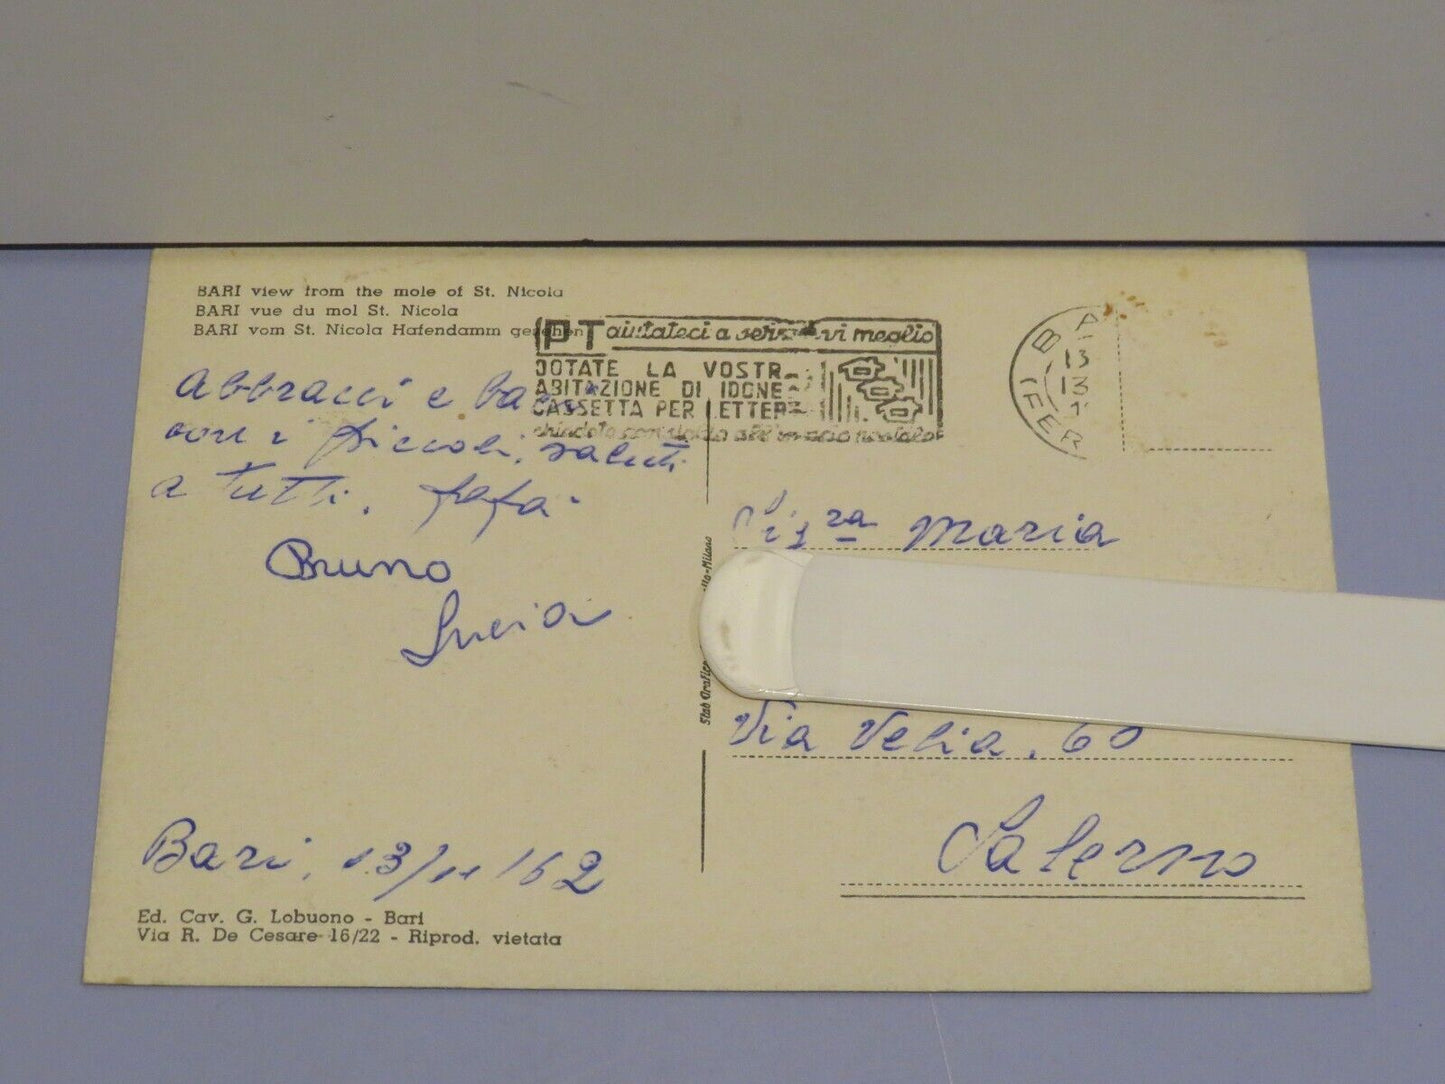 BARI view from the mole of St. Nicola
BARI vue du mol St. Nicola
BARI vom St. Nicola Hafendamm gesehen
PT aiutateci a servirvi meglio
DOTATE LA VOSTR
ABITAZIONE DI IDONE
CASSETTA PER LETTER
abbracci e
piccoli, saluti
a tutti.
Bruno
Lucia
Bari, 13/11/62
Ed. Cav. G. Lobuono - Bari
Via R. De Cesare 16/22 - Riprod. vietata
Stab Grafico
lla-Milano
BA
13
13
1
(FER
Sig.ra Maria
Via Velia, 60
Salerno